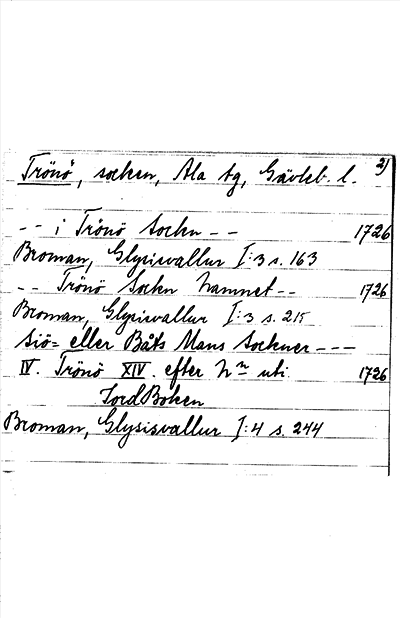 Trönö, socken, Ala tg, Gävleb. l. 2)
-- i Trönö Sockn -- 1726
Broman, Glysisvallur I:3 s. 163
-- Trönö Sockn hamnet -- 1726
Broman, Glysisvallur I:3 s. 215
Siö= eller Båts Mans Sockner ---
IV. Trönö XIV. efter Nrn uti 1726
JordBoken
Broman, Glysisvallur I:4 s. 244